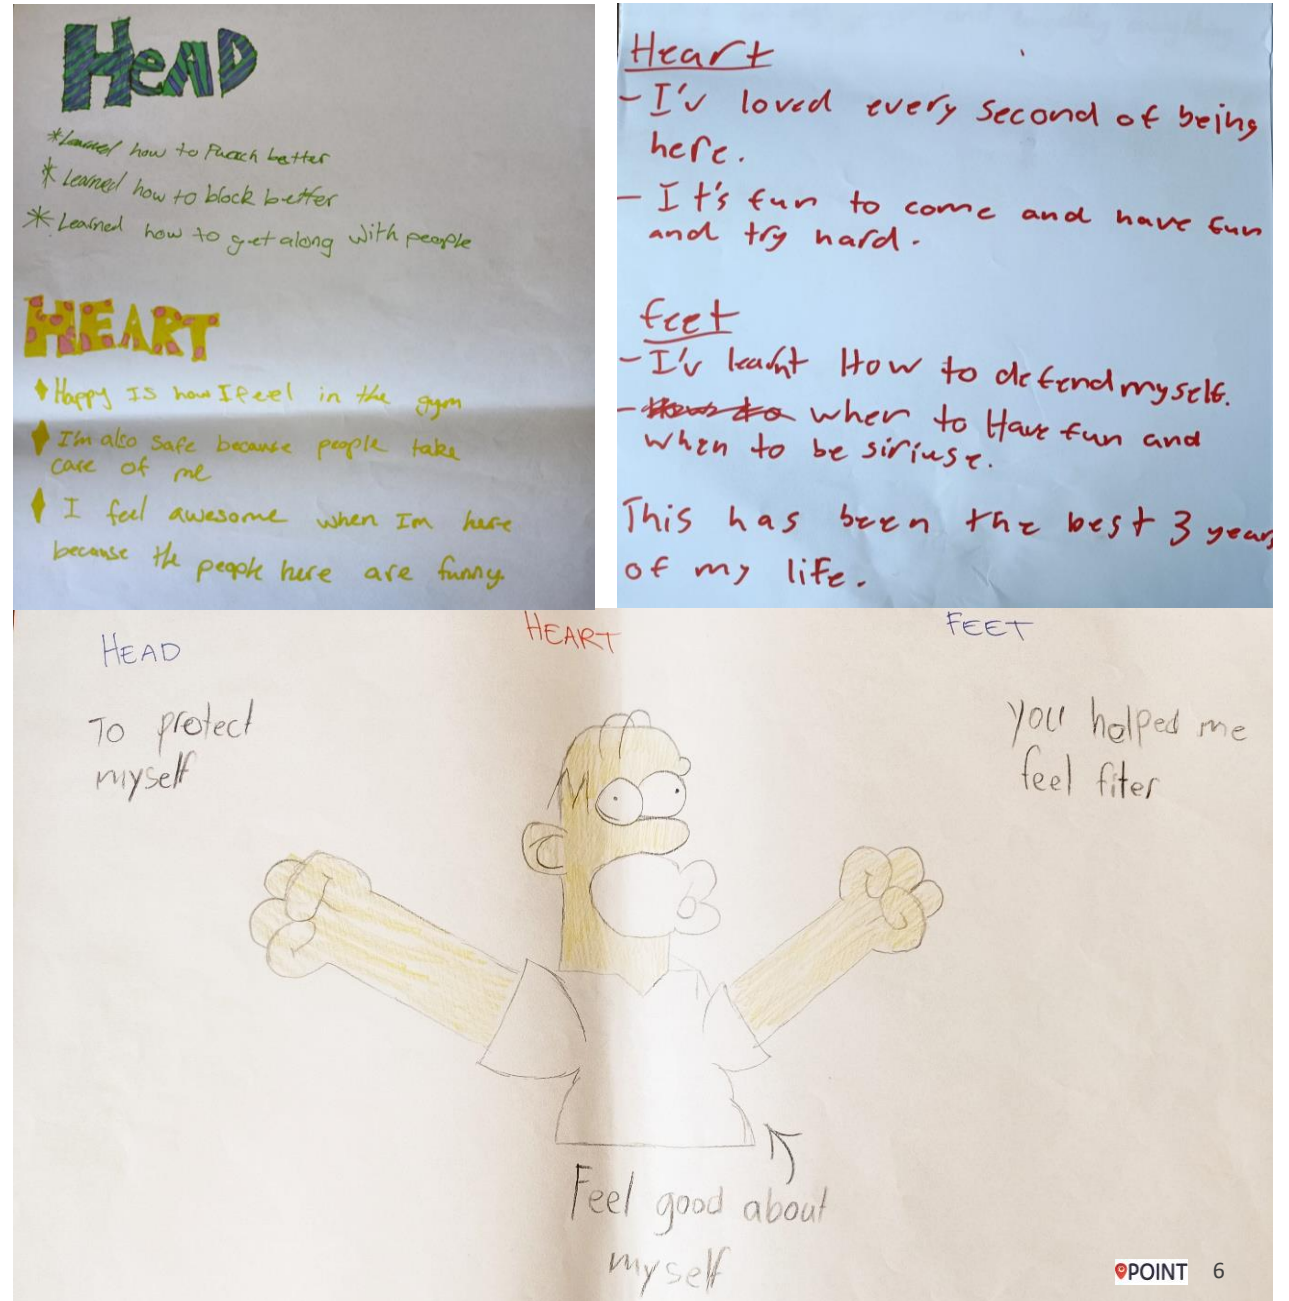 HEAD
*Learned how to Punch better
*Learned how to block better
*Learned how to get along with people
HEART
Happy Is how I feel in the gym
I'm also safe because people take
care of me
I feel awesome when Im here
because the people here are funny.
Heart
- I'v loved every second of being
here.
- It's fun to come and have fun
and try hard.
feet
- I'v learnt How to defend myself.
- How to when to Have fun and
when to be siriuse.
This has been the best 3 years
of my life.
HEAD
HEART
FEET
To protect
myself
you helped me
feel fiter
Feel good about
myself
POINT 6